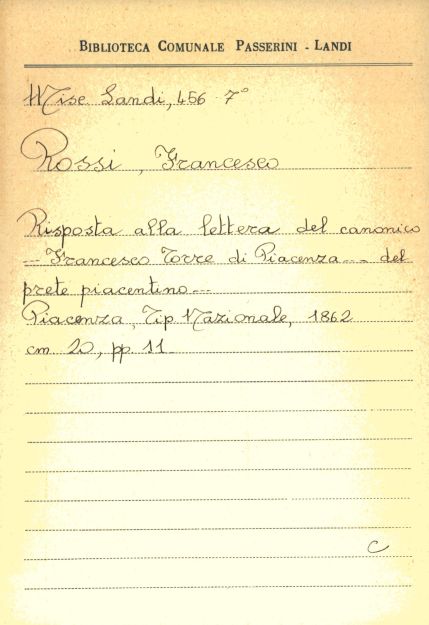 BIBLIOTECA COMUNALE PASSERINI - LANDI
Misc Landi, 456 7°
Rossi, Francesco
Risposta alla lettera del canonico
... Francesco Torre di Piacenza ... del
prete piacentino ...
Piacenza, Tip. Nazionale, 1862
cm 20, pp. 11
C